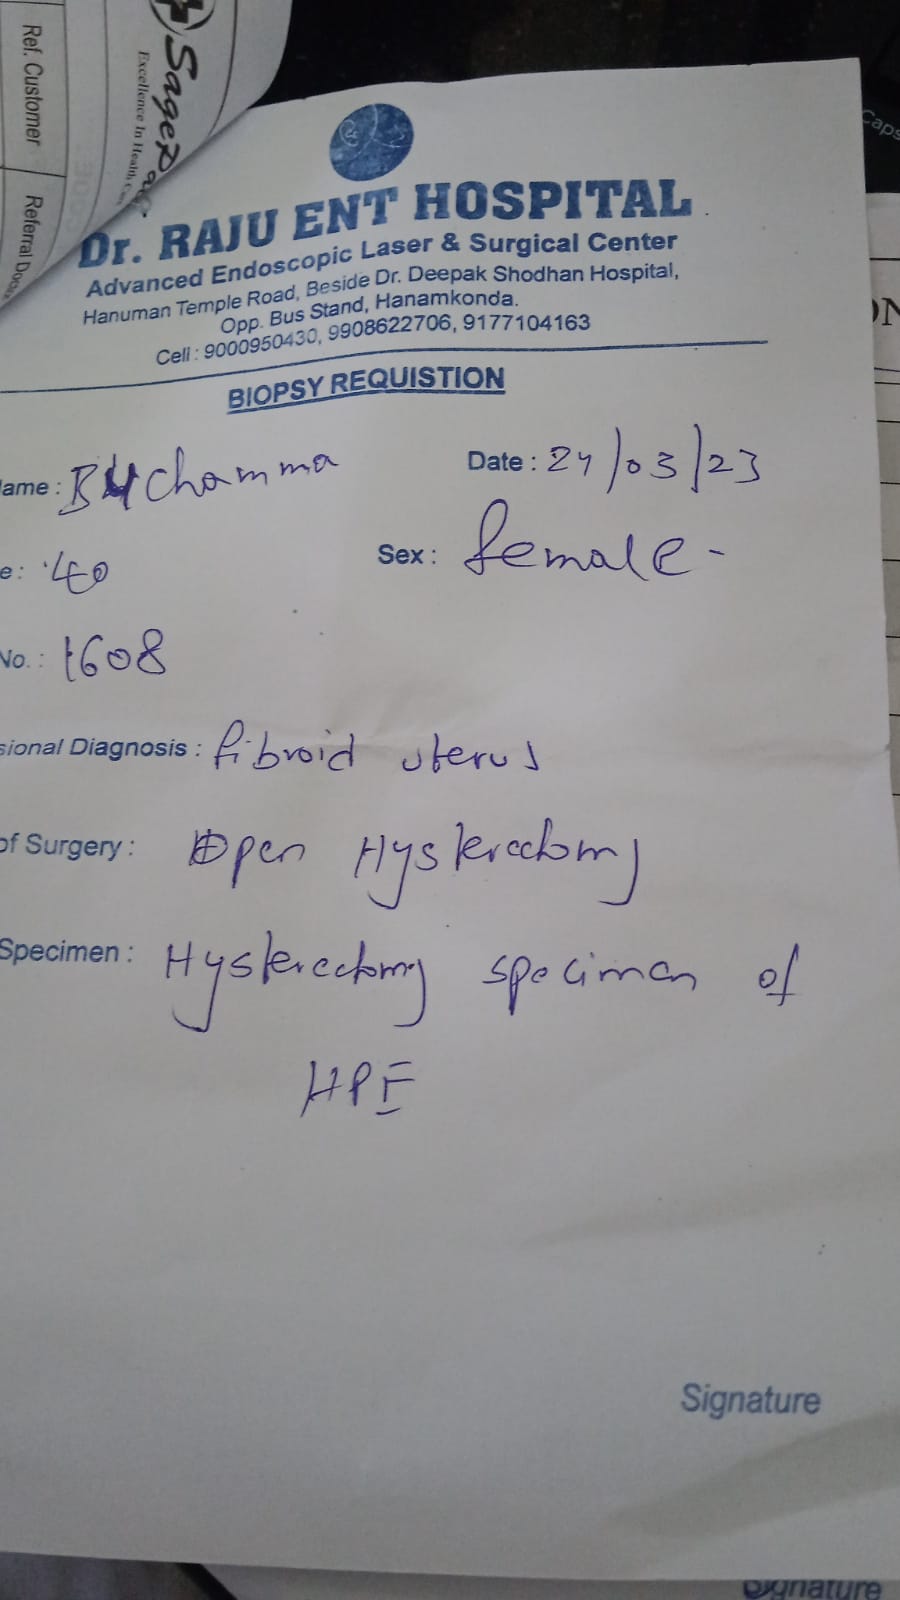 Ref. Customer
Referral
Excellence In Health
Dr. RAJU ENT HOSPITAL
Advanced Endoscopic Laser & Surgical Center
Hanuman Temple Road, Beside Dr. Deepak Shodhan Hospital,
Opp. Bus Stand, Hanamkonda.
Cell : 9000950430, 9908622706, 9177104163
BIOPSY REQUISTION
ame : Buchamma Date : 24/03/23
e : 40 Sex : female -
No. : 1608
sional Diagnosis : fibroid uterus
of Surgery : Open Hysterectomy
Specimen : Hysterectomy specimen of
HPE
Signature
Signature
Caps